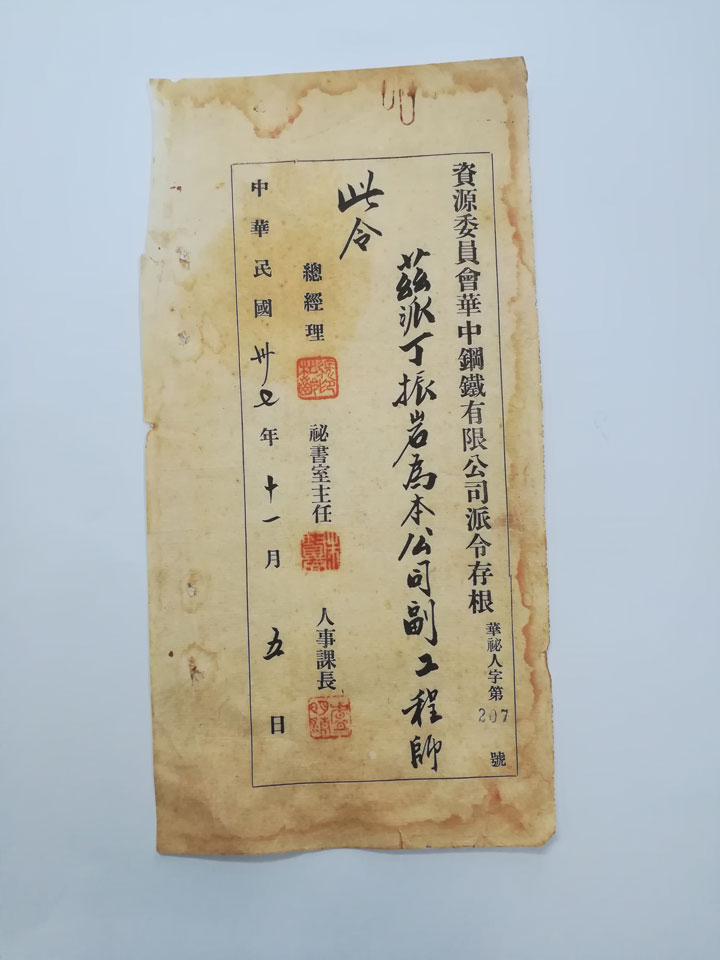 資源委員會華中鋼鐵有限公司派令存根
華祕人字第207號
茲派丁振岩為本公司副工程師
此令
總經理
祕書室主任
人事課長
中華民國卅七年十一月五日